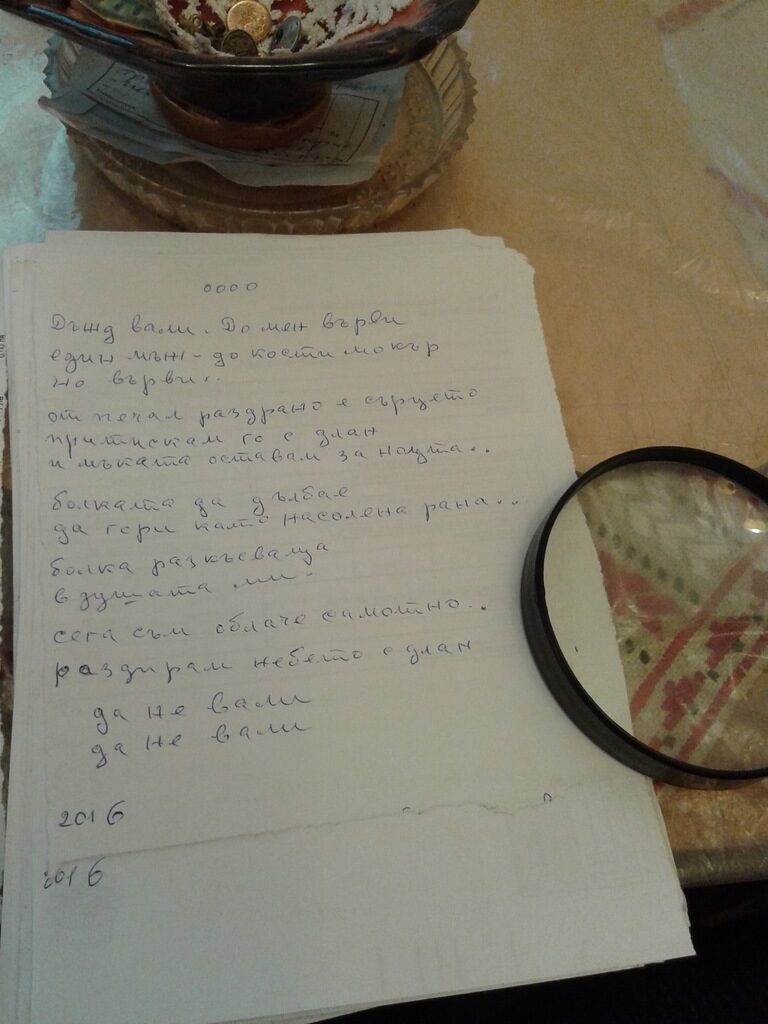 оооо
Дъжд вали. До мен върви
един мъж - до кости мокър
но върви..
от печал раздрано е сърцето
притискам го с длан
и мъката оставам за нощта..
болката да дълбае
да гори като насолена рана...
болка разкъсваща
в душата ми.
сега съм облаче самотно..
раздирам небето с длан
да не вали
да не вали
2016
2016